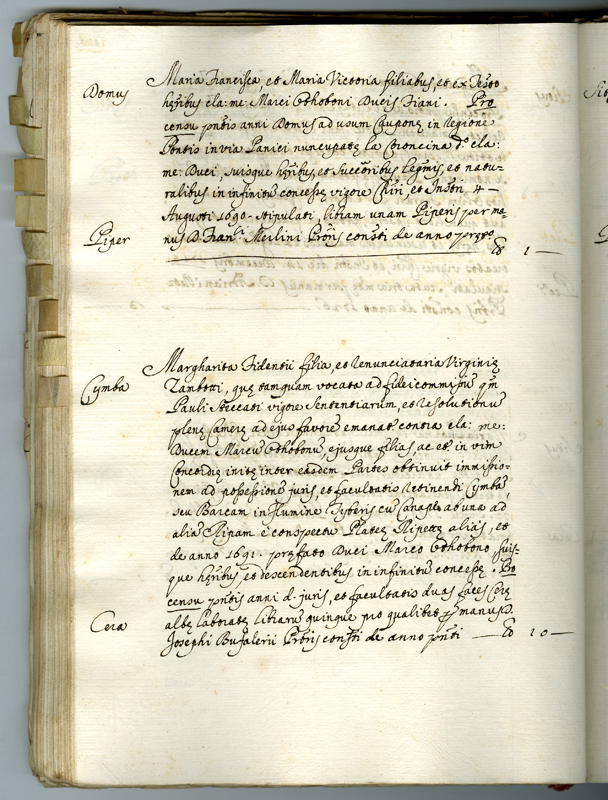 Domus
Maria Francisca, et Maria Victoria filiabus, et ex Testo
hęribus cla: me: Marci Othoboni Ducis Fiani. Pro
censu pñtis anni Domus ad usum Cauponę in regione
Pontis in via Panici nuncupatę la Coroncina d.º cla:
me: Duci, suisque hęribus, et Succribus Legmis, et natu-
ralibus in infinitũ concessę vigore Chiri, et Instri 4
Augusti 1690 - stipulati, libram unam Piperis per ma-
Piper
nus D. Fran.ci Merlini Pròris constti de anno pręto
1 —
Cymba
Margharita Fidentii filia, et renunciataria Virginię
Zambotti, quę tamquam vocata ad fideicommissũ qm̃
Pauli Steccati vigore Sententiarum, et resolutionũ
plenę Camerę ad ejus favorẽ emanat contra cla: me:
Ducem Marcũ Othobonũ, ejusque filias, ac et in vim
Concordię initę inter easdem Partes obtinuit immissio-
nem ad possessionẽ juris, et facultatis retinendi Cymbã,
seu Barcam in flumine Tyberis cũ Canapo ab una ad
aliã Ripam è conspectu Plateę Ripettę aliàs, et
de anno 1691. pręfato Duci Marco Othobono, suis-
que hęribus et descendentibus in infinitũ concessę. Pro
censu pñtis anni d. juris, et facultatis duas faces Cerę
albę laboratę librarũ quinque pro qualibet p manus D.
Cera
Josephi Bufalerii Pròris constti de anno pñti — 10 —